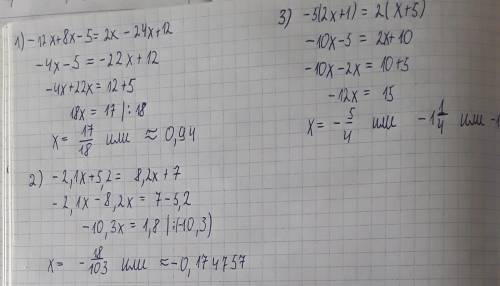 1) -12x+8x-5=2x-24x+12
-4x-5=-22x+12
-4x+22x=12+5
18x=17 |:18
x= 17/18 или ≈ 0,94
2) -2,1x+5,2= 8,2x+7
-2,1x-8,2x= 7-5,2
-10,3x=1,8 |:(-10,3)
x= -18/103 или ≈-0,174757
3) -5(2x+1)=2(x+5)
-10x-5= 2x+10
-10x-2x= 10+5
-12x= 15
x= -5/4 или -1 1/4 или -1